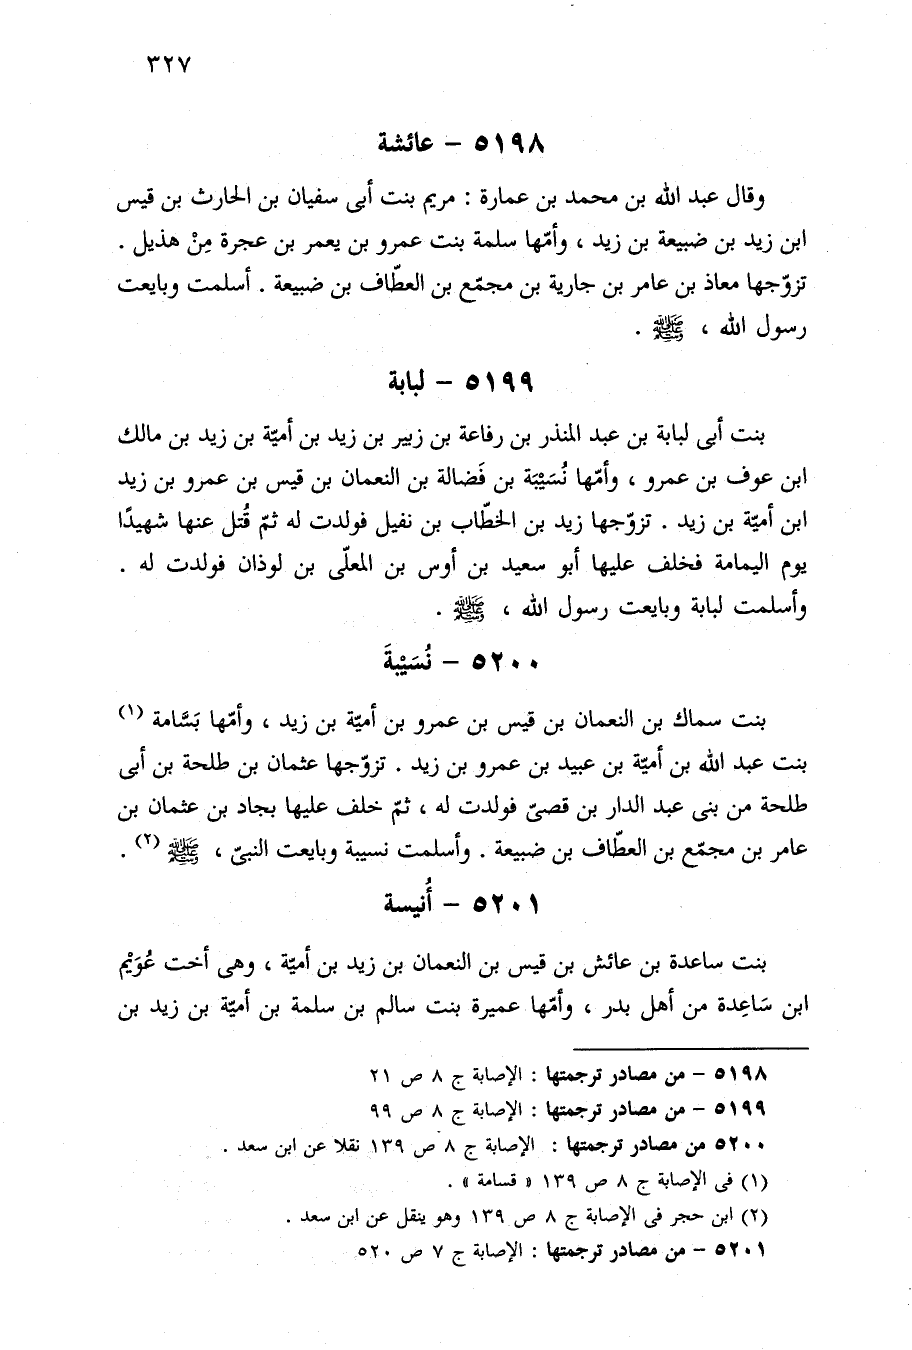 ٣٢٧
٥١٩٨ - عائشة
وقال عبد الله بن محمد بن عمارة : مريم بنت أبى سفيان بن الحارث بن قيس
ابن زيد بن ضبيعة بن زيد ، وأمّها سلمة بنت عمرو بن يعمر بن عجرة مِنْ هذيل .
تزوّجها معاذ بن عامر بن جارية بن مجمّع بن العطّاف بن ضبيعة . أسلمت وبايعت
رسول الله ، ﷺ .
٥١٩٩ - لبابة
بنت أبى لبابة بن عبد المنذر بن رفاعة بن زبير بن زيد بن أميّة بن زيد بن مالك
ابن عوف بن عمرو ، وأمّها نُسَيْبَة بن فَضالة بن النعمان بن قيس بن عمرو بن زيد
ابن أميّة بن زيد . تزوّجها زيد بن الخطّاب بن نفيل فولدت له ثمّ قُتل عنها شهيدًا
يوم اليمامة فخلف عليها أبو سعيد بن أوس بن المعلّى بن لوذان فولدت له .
وأسلمت لبابة وبايعت رسول الله ، ﷺ .
٥٢٠٠ - نُسَيْبةَ
بنت سماك بن النعمان بن قيس بن عمرو بن أميّة بن زيد ، وأمّها بَسَّامة (١)
بنت عبد الله بن أميّة بن عبيد بن عمرو بن زيد . تزوّجها عثمان بن طلحة بن أبى
طلحة من بنى عبد الدار بن قصىّ فولدت له ، ثمّ خلف عليها بجاد بن عثمان بن
عامر بن مجمّع بن العطّاف بن ضبيعة . وأسلمت نسيبة وبايعت النبىّ ، ﷺ (٢) .
٥٢٠١ - أُنيسة
بنت ساعدة بن عائش بن قيس بن النعمان بن زيد بن أميّة ، وهى أخت عُوَيْم
ابن سَاعِدة من أهل بدر ، وأمّها عميرة بنت سالم بن سلمة بن أميّة بن زيد بن
٥١٩٨ - من مصادر ترجمتها : الإصابة ج ٨ ص ٢١
٥١٩٩ - من مصادر ترجمتها : الإصابة ج ٨ ص ٩٩
٥٢٠٠ من مصادر ترجمتها : الإصابة ج ٨ ص ١٣٩ نقلا عن ابن سعد .
(١) فى الإصابة ج ٨ ص ١٣٩ « قسامة » .
(٢) ابن حجر فى الإصابة ج ٨ ص ١٣٩ وهو ينقل عن ابن سعد .
٥٢٠١ - من مصادر ترجمتها : الإصابة ج ٧ ص ٥٢٠